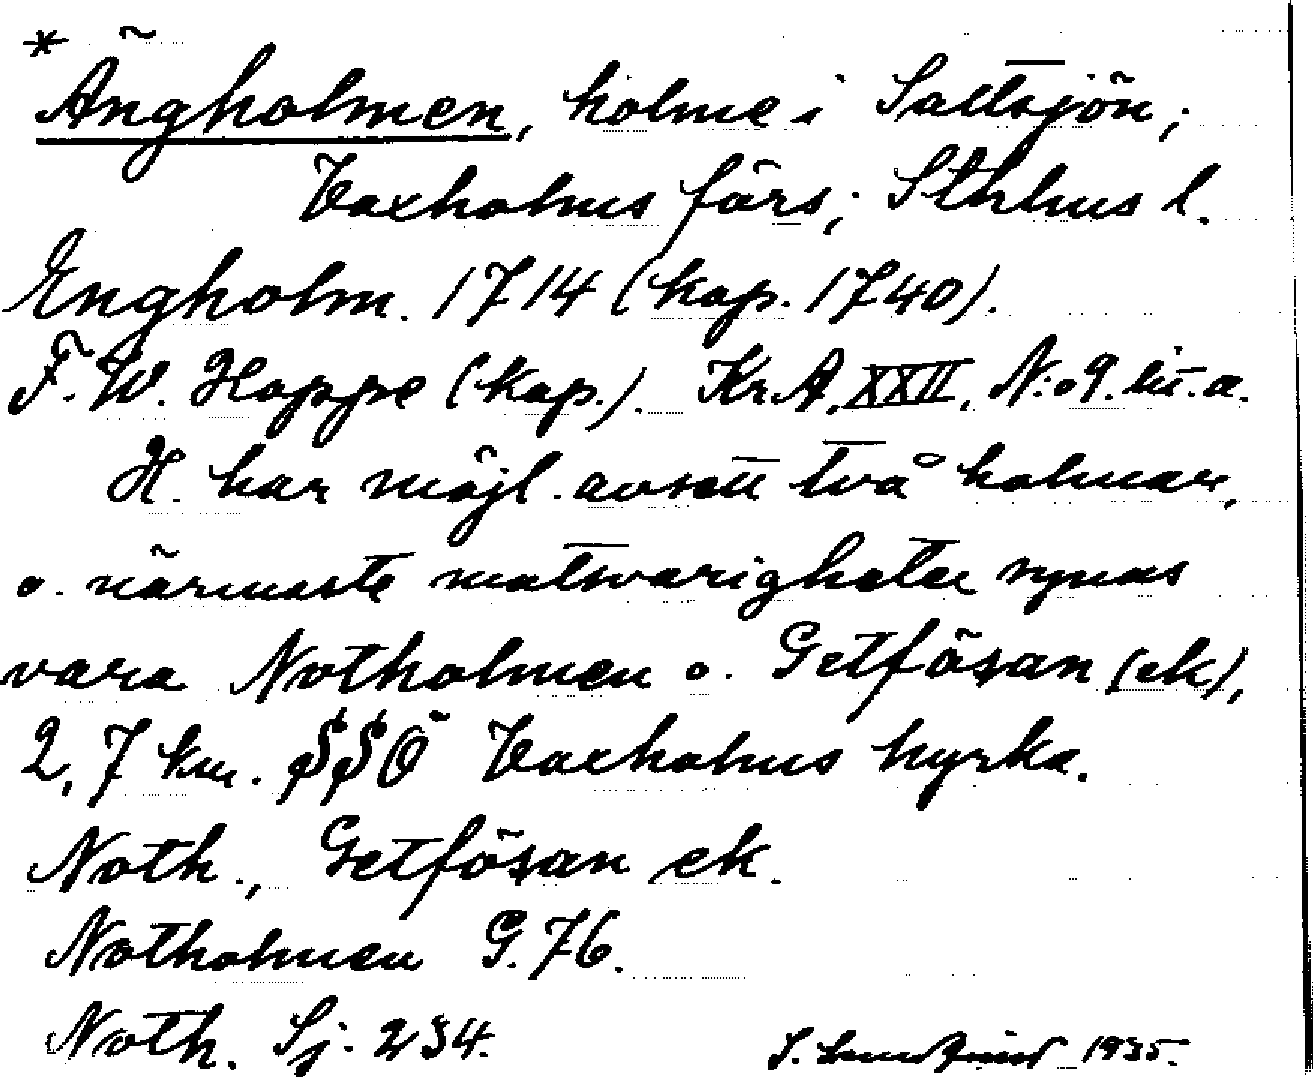 * Ängholmen, holme i Saltsjön;
Vaxholms förs; Sthlms l.
Engholm. 1714 (kop. 1740).
F. W. Hoppe (kop.). Kr. A. XXII. N:o 9. litt. a.
H. har möjl. avsett två holmar,
o. närmaste motsvarigheter synas
vara Notholmen o. Getfösan (ek),
2,7 km. SSÖ Vaxholms kyrka.
Noth., Getfösan ek.
Notholmen G. 76.
Noth. Sj. 234.
1935.